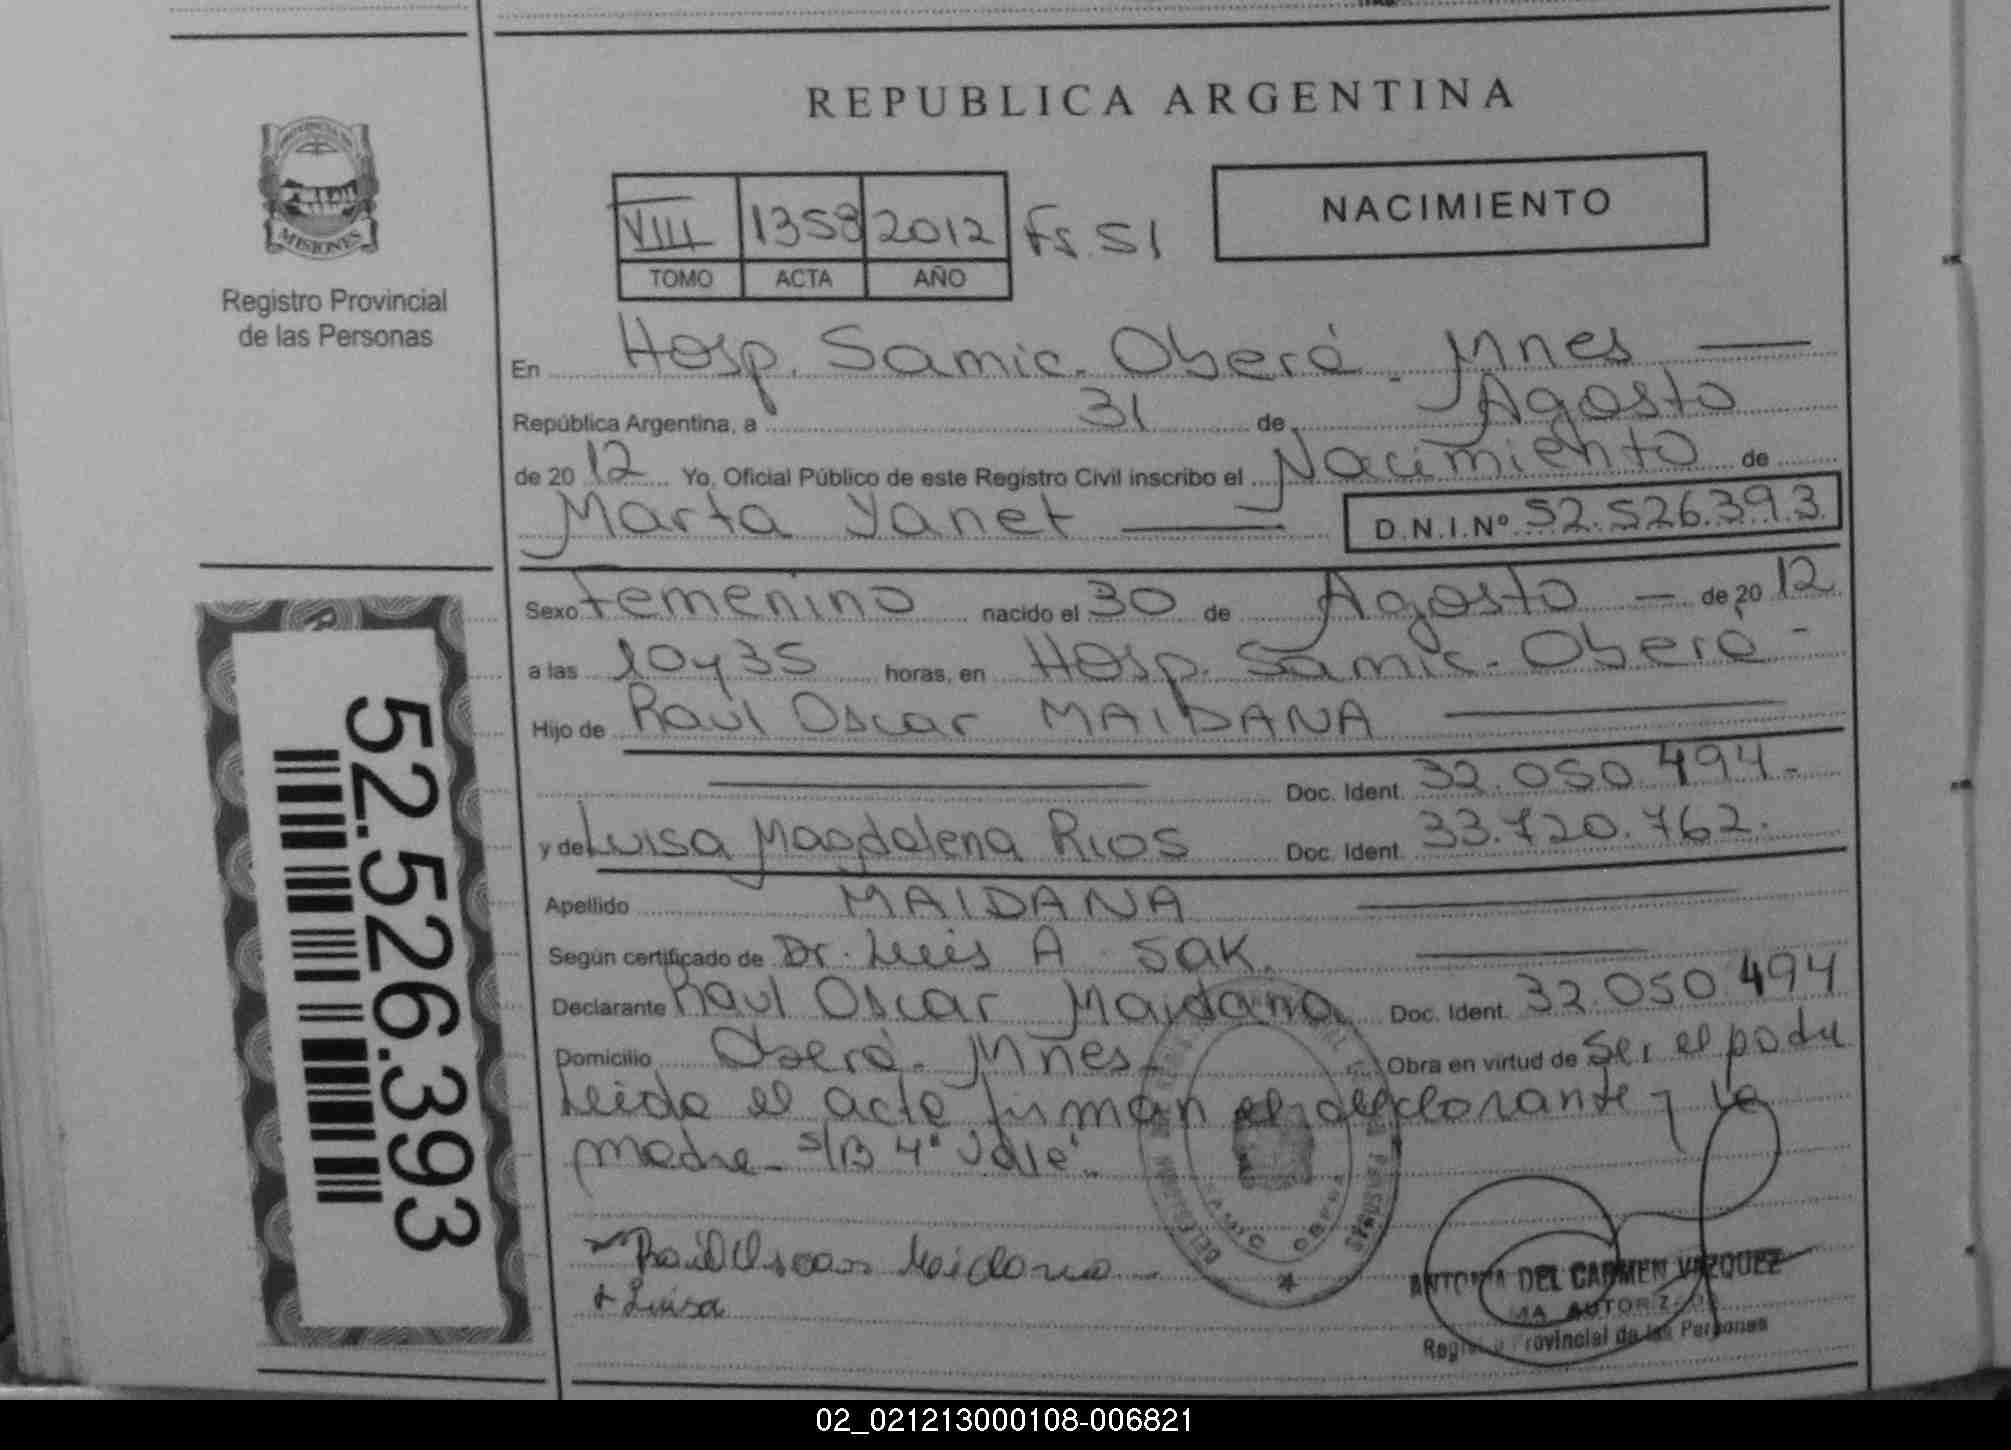 REPUBLICA ARGENTINA
PROVINCIA DE
MISIONES
Registro Provincial
de las Personas
VIII 1358 2012 Fs. 51
TOMO ACTA AÑO
NACIMIENTO
En Hosp. Samic. Oberá. Mnes
República Argentina, a 31 de Agosto
de 2012 Yo, Oficial Público de este Registro Civil inscribo el Nacimiento de
Marta Yanet D.N.I.Nº 52.526.393
Sexo Femenino nacido el 30 de Agosto de 2012
a las 10 y 35 horas, en Hosp. Samic. Oberá
Hijo de Raúl Oscar MAIDANA
Doc. Ident. 32.050.494
y de Luisa Magdalena Rios Doc. Ident. 33.720.762.
Apellido MAIDANA
Según certificado de Dr. Luis A. Sak.
Declarante Raul Oscar Maidana Doc. Ident. 32.050.494
Domicilio Oberá. Mnes Obra en virtud de Ser el padre
Leida el acta firman el declarante y la
madre S/B 4° Vale.
Raúl Oscar Maidana
+ Luisa
52.526.393
ANTONIA DEL CARMEN VAZQUEZ
AUTORIZADA
Registro Provincial de las Personas
02_021213000108-006821